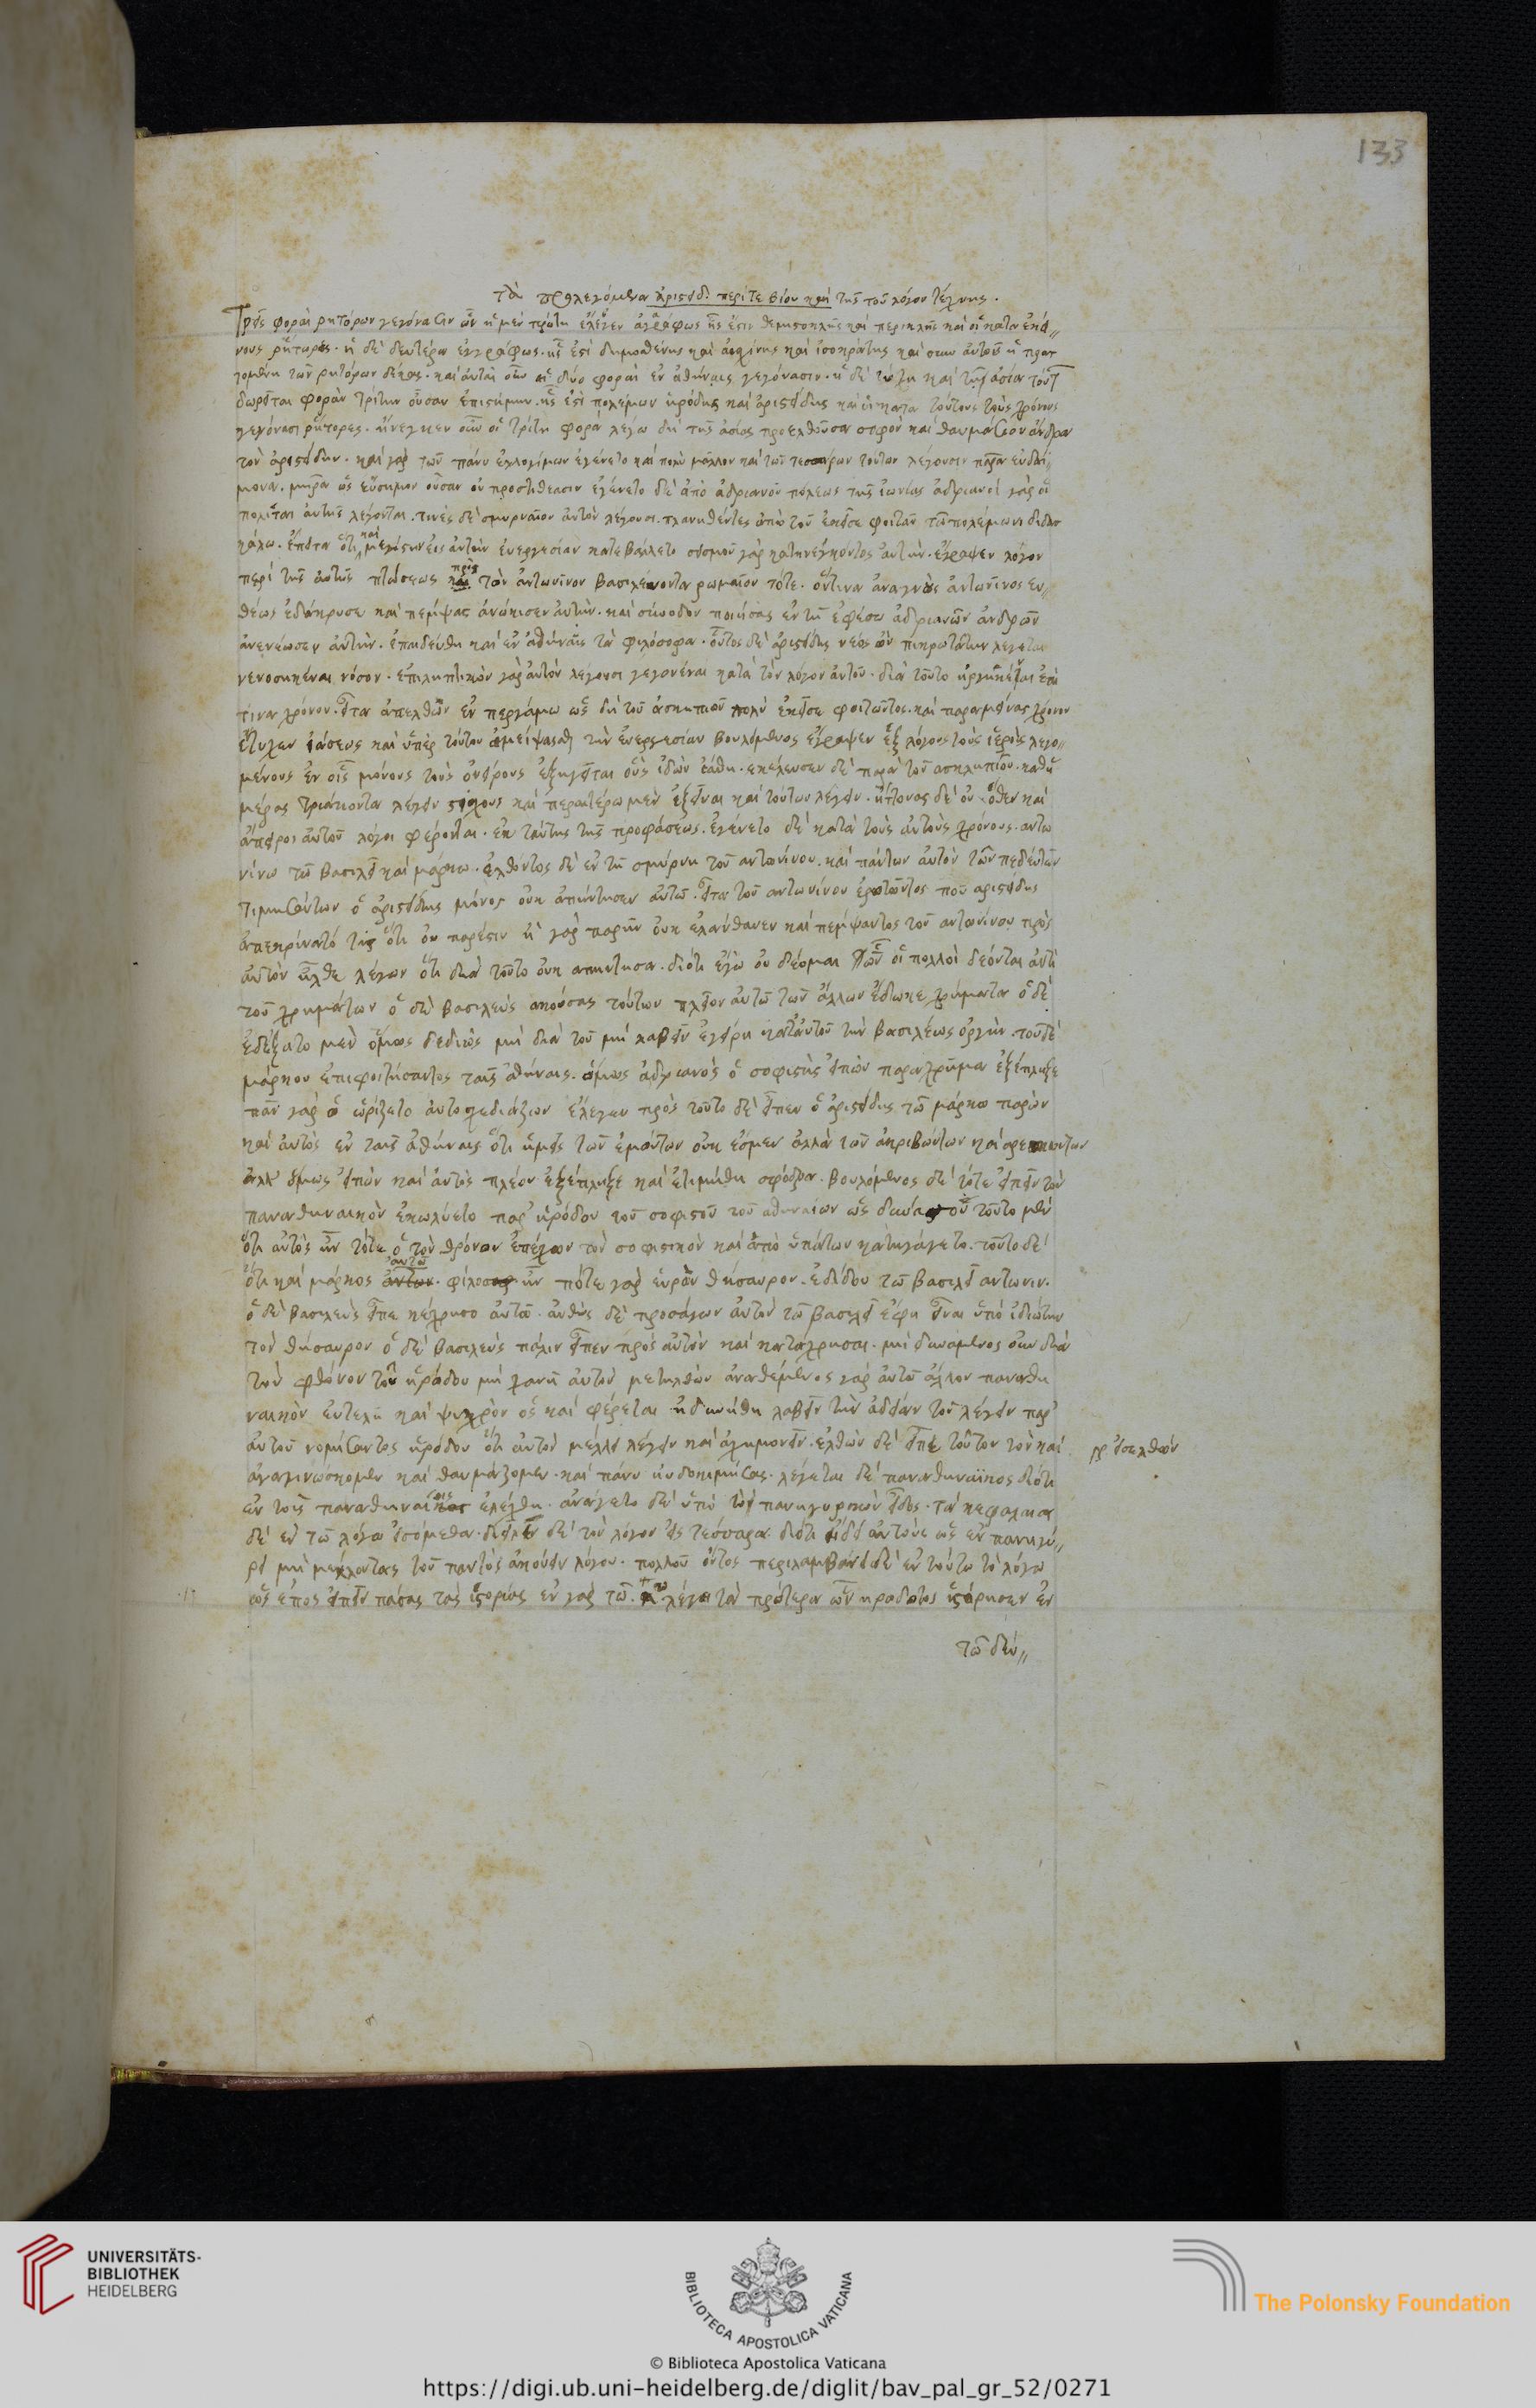 133
τὰ προλεγόμενα ἀριστείδ περί τε βίου καὶ τῆς τοῦ λόγου τέχνης.
Τρεῖς φοραὶ ῥητόρων γεγόνασιν ὧν ἡ μὲν πρώτη ἔλεγεν ἀγράφως ἧς ἐστιν θεμιστοκλῆς καὶ περικλῆς καὶ οἱ κατα ἐκεί
νους ῥήτορες. ἡ δὲ δευτέρα ἐγγράφως. ἧς ἐστὶ δημοσθένης καὶ αἰσχίνης καὶ ἰσοκράτης καὶ σὺν αὐτοῖς ἡ πρατ
τομένη τῶν ῥητόρων δεκας. καὶ αὗται οὖν αἱ δύο φοραὶ ἐν ἀθήναις γεγόνασιν. ἡ δὲ τύχη καὶ τὴν ἀσίαν τούτ
δωρεῖται φορὰν τρίτην οὖσαν ἐπισήμην. ἧς ἐστὶ πολέμων ἡρόδης καὶ ἀριστείδης καὶ οἱ κατα τούτους τοὺς χρόνους
γεγόνασι ῥήτορες. ἤνεγκεν οὖν ἡ τρίτη φορά λέγω δὴ τῆς ἀσίας προελθοῦσα σοφὸν καὶ θαυμάσιον ἄνδρα
τὸν ἀριστείδην. καὶ γὰρ τῶν πάνυ ἐλλογίμων ἐγένετο καὶ πολὺ μᾶλλον καὶ τῶν τεσσάρων τοῦτον λέγουσιν πατρα εὐδαί
μονα. μητρα ὡς εὔσημον οὖσαν οὐ προστιθέασιν ἐγένετο δὲ ἀπὸ ἀδριανοῦ πόλεως τῆς ἰωνίας ἀδριανοὶ γὰρ οἱ
πολῖται αὐτῆς λέγονται. τινὲς δὲ σμυρναῖον αὐτὸν λέγουσι. πλανηθέντες ἀπὸ τοῦ ἐκεῖσε φοιτᾶν τῶ πολέμωνι διδασ
κάλω. ἔπειτα ὅτι καὶ μεγίστην εἰς αὐτὴν ἐνεργεσίαν κατεβάλλετο σεισμοῦ γὰρ κατηνεγκόντος αὐτὴν. ἔγραψεν λόγον
περὶ τῆς αὐτῆς πτώσεως πρὸς τὸν ἀντωνῖνον βασιλέυοντα ρωμαῖον τότε. ὅντινα ἀναγνοὺς ἀντωνῖνος ευ
θέως ἐδάκρυσε καὶ πέμψας ἀνώκισεν αὐτὴν. καὶ σύνοδον ποιήσας ἐν τῆ ἐφέσω ἀδριανῶν ἀνδρῶν
ἀνενέωσεν αὐτὴν. ἐπαιδεύθη καὶ ἐν ἀθήναις τὰ φιλόσοφα. οὗτος δὲ ἀριστείδης νέος ὢν πικροτάτην λέγεται
νενοσηκέναι νόσον. ἐπιληπτικὸν γὰρ αὐτὸν λέγουσι γεγονέναι κατὰ τὸν λόγον αὐτοῦ. διὰ τοῦτο ἐπὶ
τινα χρόνον. εἶτα ἀπελθὼν ἐν περγάμω ὡς δὴ τοῦ ἀσκηπιοῦ πολὺ ἐκεῖσε φοιτῶντος. καὶ παραμείνας χρόνον
ἔτυχεν ἰάσεως καὶ ὑπὲρ τούτου ἀμείψασθ τὴν ἐνεργεσίαν βουλόμενος ἔγραψεν ἓξ λόγους τοὺς ἱεροὺς λεγο
μένους ἐν οἷς μόνους τοὺς ὀνείρους ἐξηγεῖται οὓς ἰδὼν ἰάθη. ἐκέλευσεν δὲ παρὰ τοῦ ασκληπιοῦ. καθη
μέρας τριάκοντα λέγειν στίχους καὶ περαιτέρω μὲν ἐξεῖναι καὶ τούτων λέγειν. ἥττονας δὲ οὐ. ὅθεν καὶ
ἄπειροι αὐτοῦ λόγοι φέρονται. ἐκ ταύτης τῆς προφάσεως. ἐγένετο δὲ κατὰ τοὺς αὐτοὺς χρόνους. αντω
νίνω τῶ βασιλεῖ καὶ μάρκω. ἐλθόντος δὲ ἐν τῆ σμύρνη τοῦ αντωνίνου. καὶ πάντων αὐτὸν τῶν πεδευτῶν
τιμησάντων ὁ ἀριστείδης μόνος οὐκ ἀπήντησεν αὐτῶ. εἶτα τοῦ αντωνίνου ἐρωτῶντος ποῦ αριστείδης
ἀπεκρίνατό τις ὅτι οὐ πάρεστιν εἰ γὰρ παρῆν οὐκ ἐλάνθανεν καὶ πέμψαντος τοῦ αντωνίνου πρὸς
αὐτὸν ἦλθε λέγων ὅτι διὰ τοῦτο οὐκ απήντησα. διότι ἐγὼ οὐ δέομαι ὧν οἱ πολλοὶ δέονται ἀντὶ
τοῦ χρημάτων ὁ δὲ βασιλεὺς ακούσας τούτων πλεῖον αὐτῶ τῶν ἄλλων ἔδωκε χρήματα ὁ δὲ
ἐδέξατο μὲν ὅμως δεδιὼς μὴ διὰ τοῦ μὴ λαβεῖν ἐγείρη κατ' αὐτοῦ τὴν βασιλέως ὀργὴν. τοῦ δὲ
μάρκου ἐπιφοιτήσαντος ταῖς ἀθήναις. ὅμως ἀδριανὸς ὁ σοφιστὴς εἰπὼν παραχρῆμα ἐξέπληξε
πᾶν γὰρ ὃ ὡρίζετο ἀυτοσχεδιάζων ἔλεγεν πρὸς τοῦτο δὲ εἶπεν ὁ ἀριστείδης τῶ μάρκω παρὼν
καὶ ἀυτὸς ἐν ταῖς ἀθήναις ὅτι ἡμεῖς τῶν ἐμούντων οὐκ ἐσμεν ἀλλὰ τῶν ἀκριβούντων καὶ
ἀλλ' ὅμως εἰπὼν καὶ ἀυτὸς πλέον ἐξέπληξε καὶ ἐτιμήθη σφόδρα. βουλόμενος δὲ τότε εἰπεῖν τὸν
παναθηναικὸν ἐκωλύετο παρ' ἡρόδου τοῦ σοφιστοῦ τοῦ αθηναίων ὡς τοῦτο μὲν
ὅτι αὐτὸς ἦν τότε ὁ τὸν θρόνον ἐπέχων τὸν σοφιστικὸν καὶ ἀπὸ ὑπάτων κατηγάγετο. τοῦτο δὲ
ὅτι καὶ μάρκος αὐτῶ φίλος ἦν πότε γὰρ εὑρὼν θησαυρον. ἐδίδου τῶ βασιλεῖ αντωνιν.
ὁ δὲ βασιλεὺς εἶπε κέχρησο αὐτῶ. αὖθις δὲ προσάγων αὐτὸν τῶ βασιλεῖ ἔφη εἶναι ὑπὸ ἰδιώτην
τὸν θησαυρον ὁ δὲ βασιλεὺς πάλιν εἶπεν πρὸς αὐτὸν καὶ κατάχρησαι. μὴ δυναμενος οὖν διὰ
τὸν φθόνον τοῦ ἡρόδου μὴ αὐτὸν μετηλθὼν ἀναθέμενος γὰρ αὐτῶ ἄλλον παναθη
ναικὸν εὐτελῆ καὶ ψυχρὸν ὃς καὶ φέρεται ἠδυνήθη λαβεῖν τὴν ἀδειαν τοῦ λέγειν παρ'
ἀυτοῦ νομίσαντος ἡρόδου ὅτι αὐτὸν μέλλει λέγειν καὶ ἀσχημονεῖν. ελθὼν δὲ εἶπε τοῦτον τὸν καὶ
γρ εἰσελθὼν
ἀναγινώσκομεν καὶ θαυμάζομεν. καὶ πάνυ ἐυδοκιμήσας. λέγεται δὲ παναθηναϊκος διότι
ἐν τοῖς παναθηναίοις ἐλέχθη. ἀνάγεται δὲ ὑπὸ τὸ πανηγυρικὸν εἶδος. τὰ κεφαλαια
δὲ ἐν τῶ λόγω εἰσόμεθα. διεῖλεν δὲ τὸν λόγον εἰς τέσσαρα διότι εἶδεν αὐτοὺς ὡς ἐν πανηγύ
ρει μὴ μέλλοντας τοῦ παντὸς ἀκούειν λόγου. πολλοῦ ὄντος περιλαμβάνει δὲ ἐν τούτω τῶ λόγω
ὡς ἔπος εἰπεῖν πάσας τὰς ἱστορίας ἐν γὰρ τῶ λέγει τὰ πρότερα ὧν ηροδοτος ἱστόρησεν ἐν
τῶ δευ
UNIVERSITÄTS-
BIBLIOTHEK
HEIDELBERG
BIBLIOTECA APOSTOLICA VATICANA
The Polonsky Foundation
© Biblioteca Apostolica Vaticana
https://digi.ub.uni-heidelberg.de/diglit/bav_pal_gr_52/0271